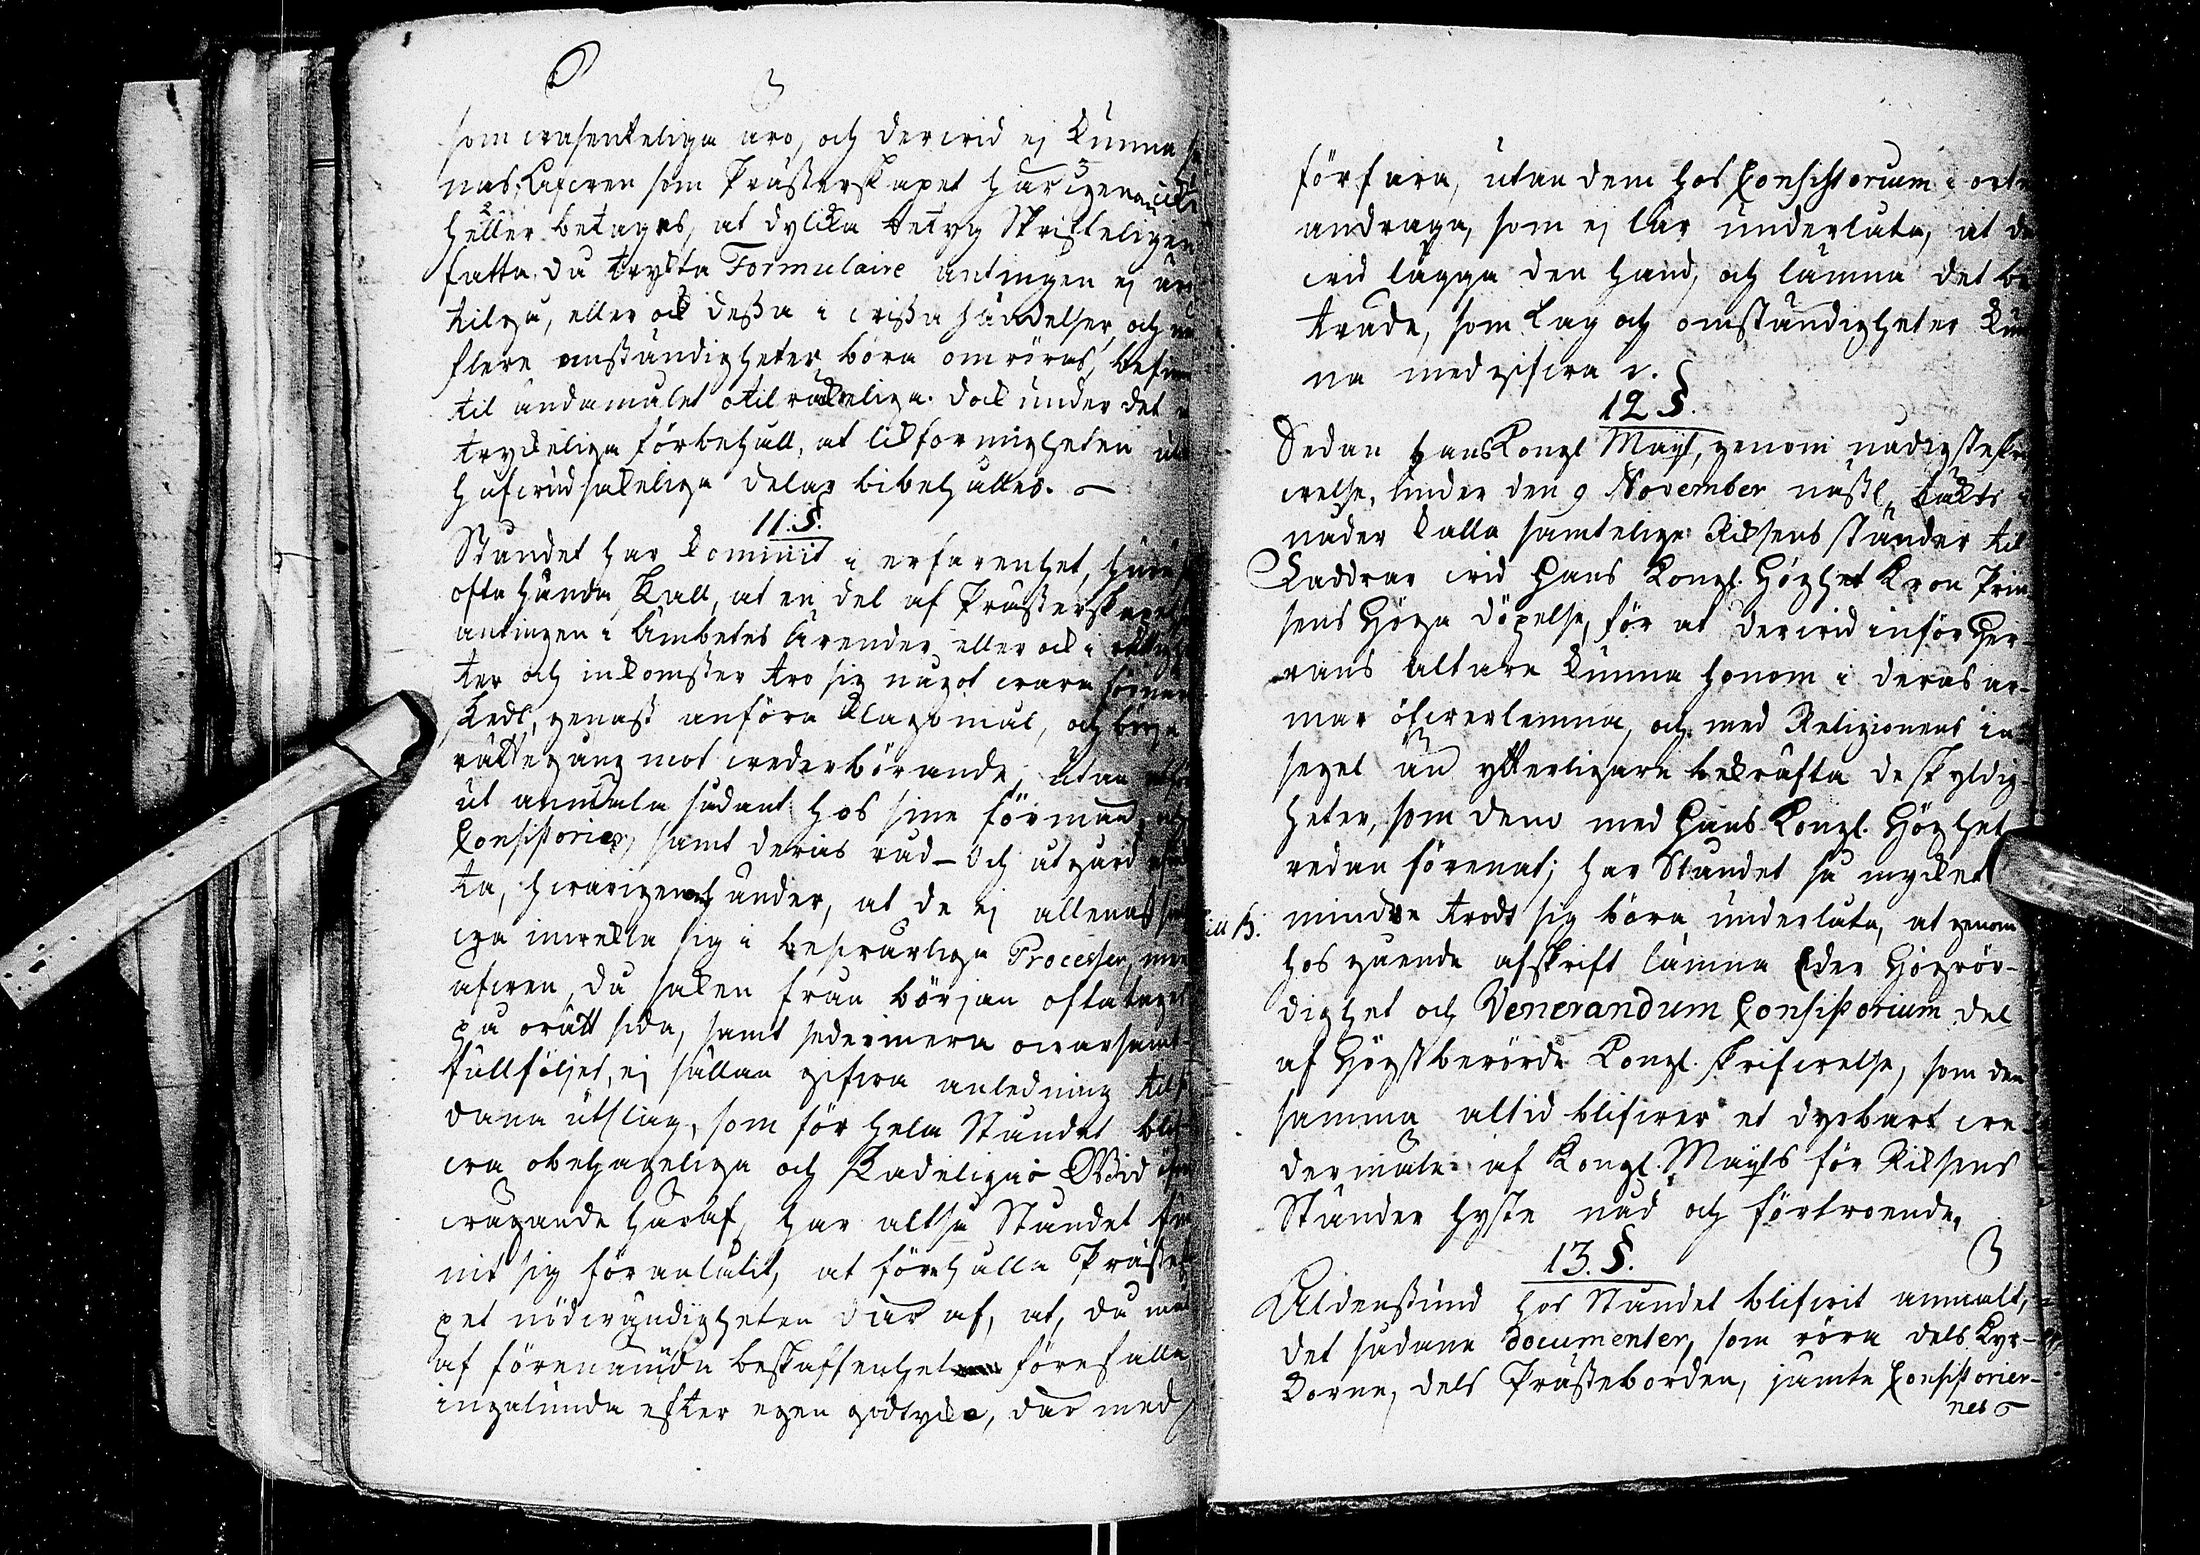 som wäsenteliga äro, och dervid ej kunna
nas; Lefwen som Prästerskapet härigenom icke
heller betages, at dylika betyg Skrifteligen
fatta, då tryckta Formulaire antingen ej äro
tilgå, eller ock dessa i wissa händelser, och
flere omständigheter böra omröras, befin
til ändamålet otilräckeliga. Dock under det
tryckeliga förbehåll, at likformigheten uti
hufwudsakeliga delar bibehålles.
11. §.
Ståndet har kommit i erfarenhet, huru
ofta hända skall, at en del af Prästerskapet
antingen i Ämbetes ärender eller ock i rättighe
ter och inkomster tro sig något wara förnär
skedt, genast anföra klagomål, och börja
rättegång mot wederbörande, utan at för
ut anmäla sådant hos sine förmän, och
Consistorier, samt deras råd- och utgärd
ta, hwarigenom händer, at de ej allenast
ga inwekla sig i beswärliga Processer, men
äfwen, då saken från början ofta tages
på orätt sida, samt sedermera owarsamt
fullföljes, ej sällan gifwa anledning til så
dana utslag, som för hela Ståndet blif
wa obehageliga och skadeliga. Wid öfwer
wägande häraf, har altså Ståndet fun
nit sig föranlåtit, at förehålla Prästerska
pet nödwändigheten där af, at, då mål
af förenämnda beskaffenhet förefalla
ingalunda efter egen godtycko, där med
förfara, utan dem hos Consistorium i orten
andraga, som ej lär underlåta, at där
wid lägga den hand, och lämna det bi
träde, som Lag och omständigheter kun
na medgifwa.
12 §.
Sedan Hans Kongl Maij:t, genom nådigste skri
welse, under den 9 November näst l. täckts i
nåder kalla samtelige Riksens ständer til
Faddrar wid Hans Kongl. Höghet Kron Prin
sens Höga döpelse, för at derwid inför Her-
rans altare kunna honom i deras ar-
mar öfwerlemna, och med Religionens in-
segel än ytterligare bekräfta de skyldig-
heter, som dem med Hans Kongl. Höghet
redan förenat; har Ståndet så mycket
till B. mindre trodt sig böra underlåta, at genom
hosgående afskrift lämna Eder Högwör-
dighet och Venerandum Consistorium del
af Högstberörde Kongl. skrifwelse, som den
samma altid blifwer et dyrbart we-
dermäle af Kongl. Maij:ts för Riksens
Ständer hyste nåd och förtroende.
13. §.
Aldenstund hos Ståndet blifwit anmält,
det sådana documenter, som röra dels Kyr-
korne, dels Prästeborden, jämte Consistorier-
nes